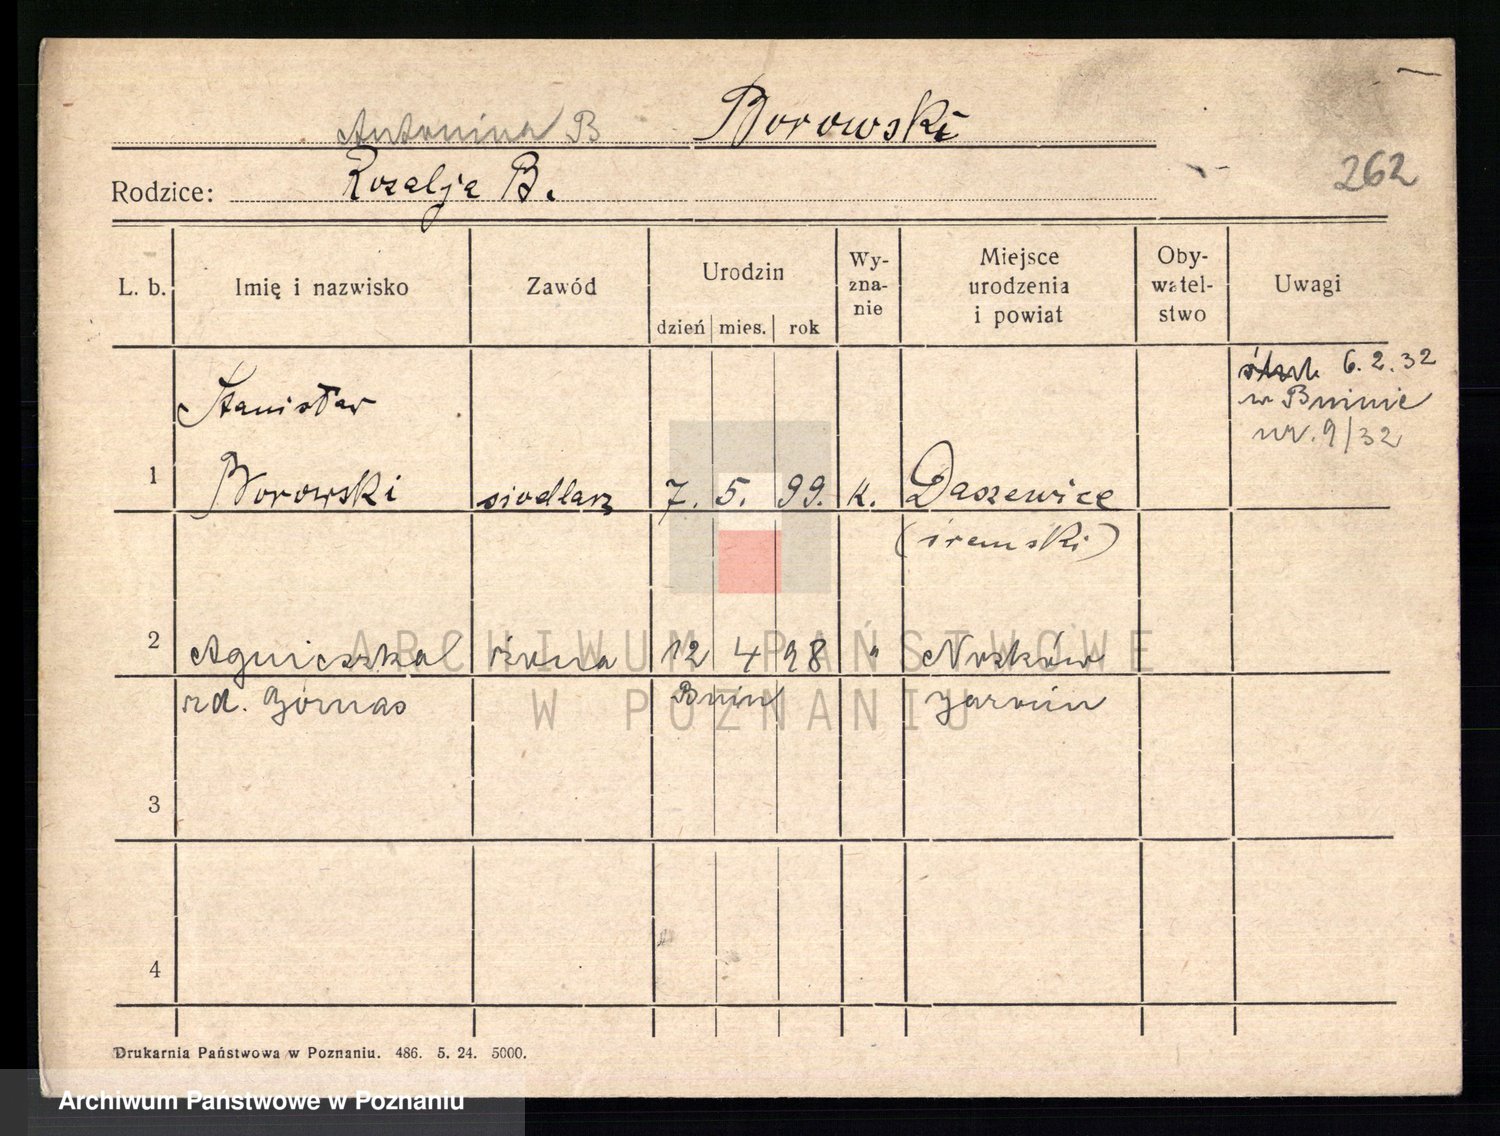 Antonina B Borowski
Rodzice: Rozalja B.
262
L. b. Imię i nazwisko Zawód Urodzin Wy-zna-nie Miejsce urodzenia i powiat Oby-watel-stwo Uwagi
dzień mies. rok
6. 2. 32
w Bninie
nr. 9/32
Stanisław
1 Borowski siodlarz 7. 5. 99. k. Daszewice
(śremski)
2 Agnieszka żona 12 4 98 " Nosków
zd. Górnas Bnin Jarocin
3
4
Drukarnia Państwowa w Poznaniu. 486. 5. 24. 5000.
ARCHIWUM PAŃSTWOWE
W POZNANIU
Archiwum Państwowe w Poznaniu